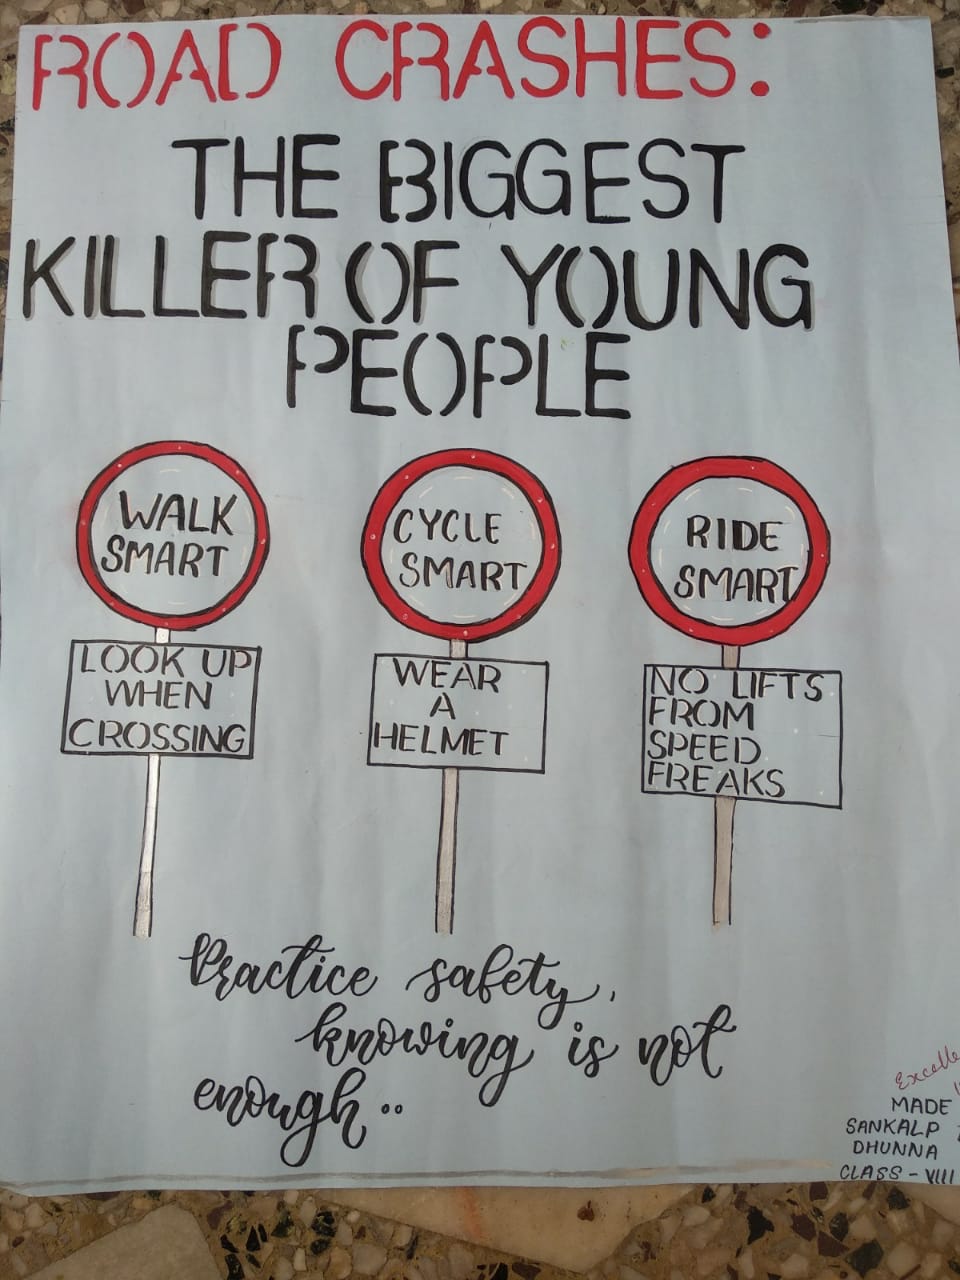 ROAD CRASHES:
THE BIGGEST
KILLER OF YOUNG
PEOPLE
WALK
SMART
LOOK UP
WHEN
CROSSING
CYCLE
SMART
WEAR
A
HELMET
RIDE
SMART
NO LIFTS
FROM
SPEED
FREAKS
Practice safety,
knowing is not
enough..
MADE
SANKALP
DHUNNA
CLASS - VIII